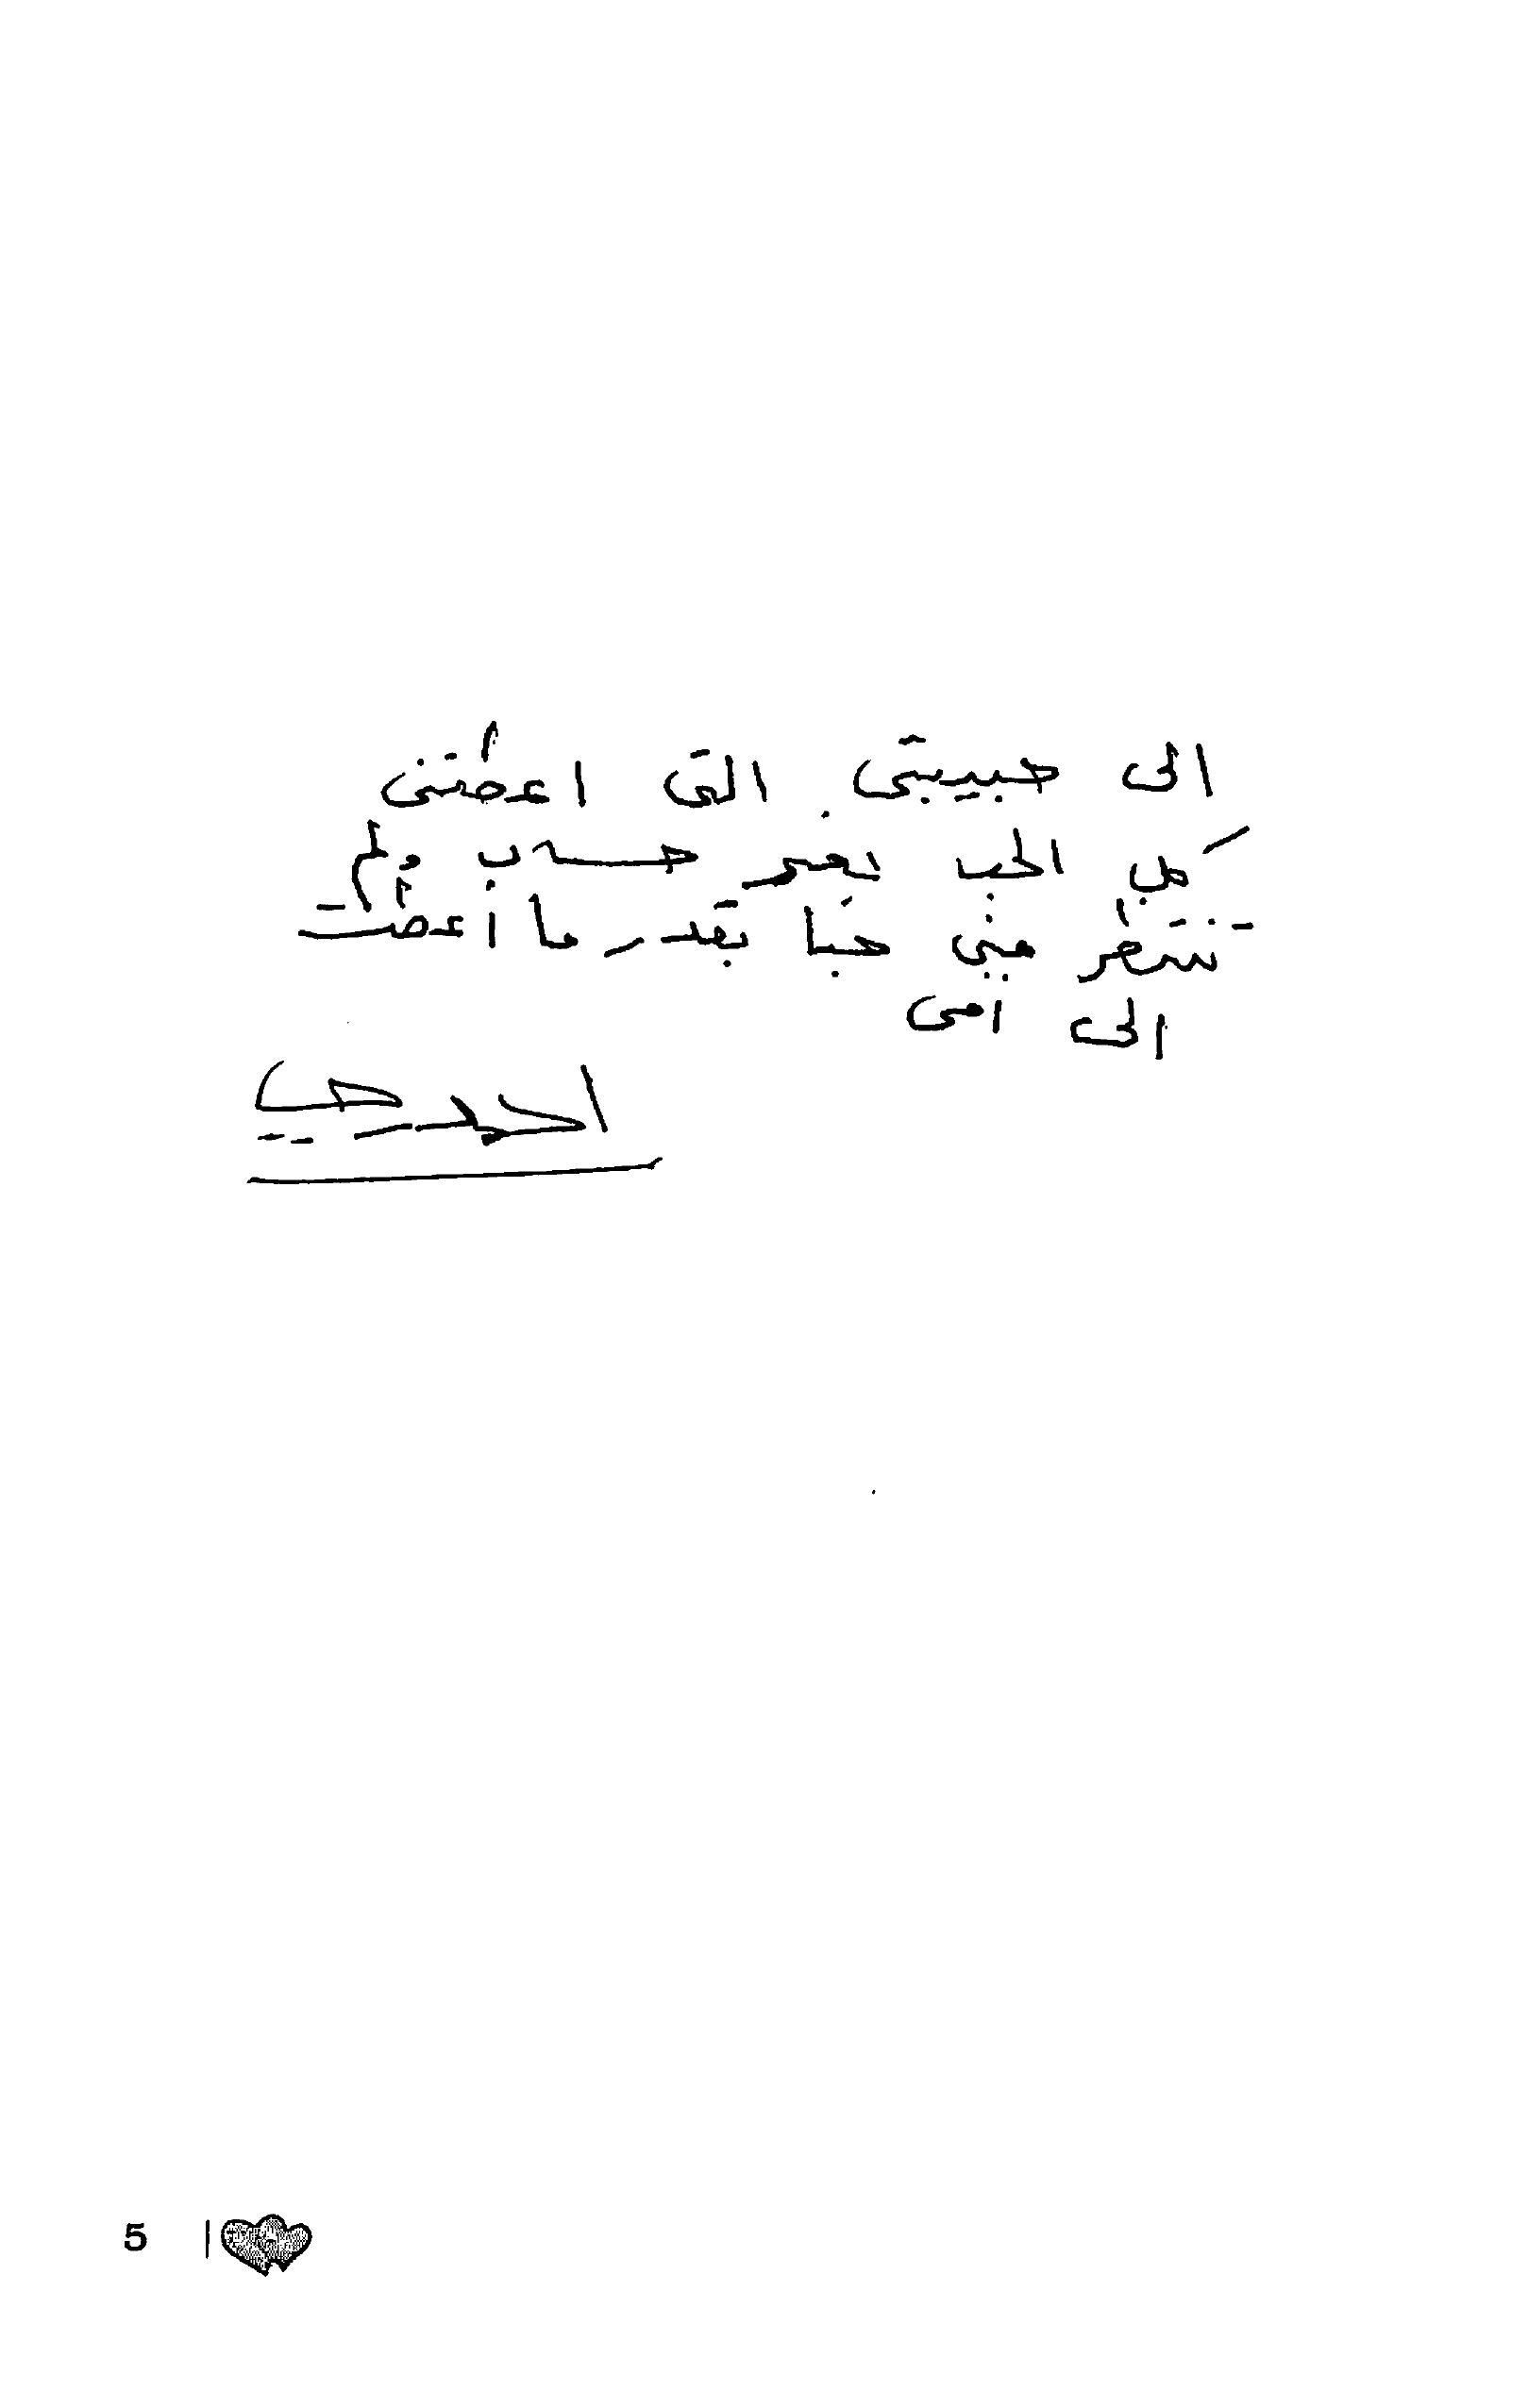 الى حبيبتى التى اعطتنى
كل الحب بغير حساب ولم
تنتظر منى حبا بقدر ما اعطت
الى امى
احمد رجب
5